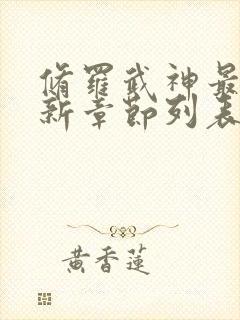 脩羅武神最
新章節列表
黃香蓮